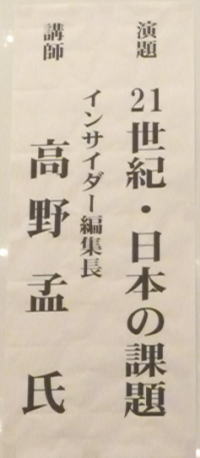 演題 21世紀・日本の課題
インサイダー編集長
講師 高野孟氏